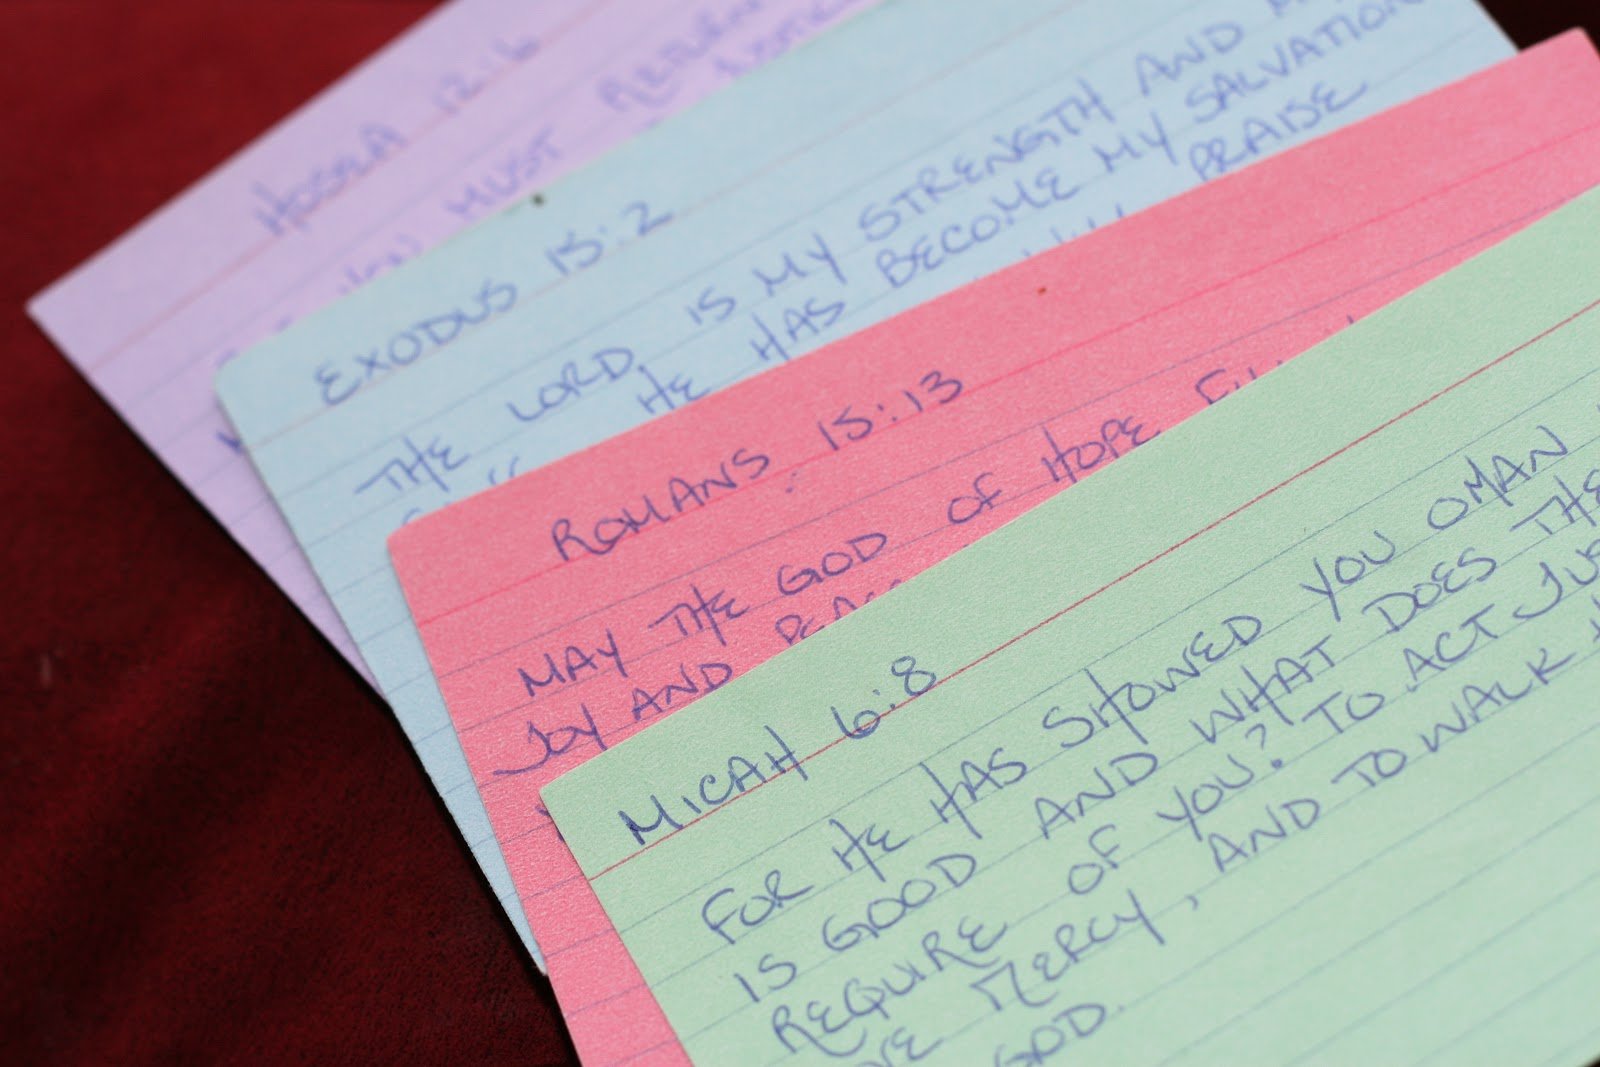 HOSEA 12:6
MUST RETURN
EXODUS 15:2
THE LORD IS MY STRENGTH AND
HE HAS BECOME MY SALVATION
PRAISE
ROMANS 15:13
MAY THE GOD OF HOPE
JOY AND
MICAH 6:8
FOR HE HAS SHOWED YOU OMAN
IS GOOD AND WHAT DOES THE
REQUIRE OF YOU? TO ACT
MERCY, AND TO WALK
GOD.